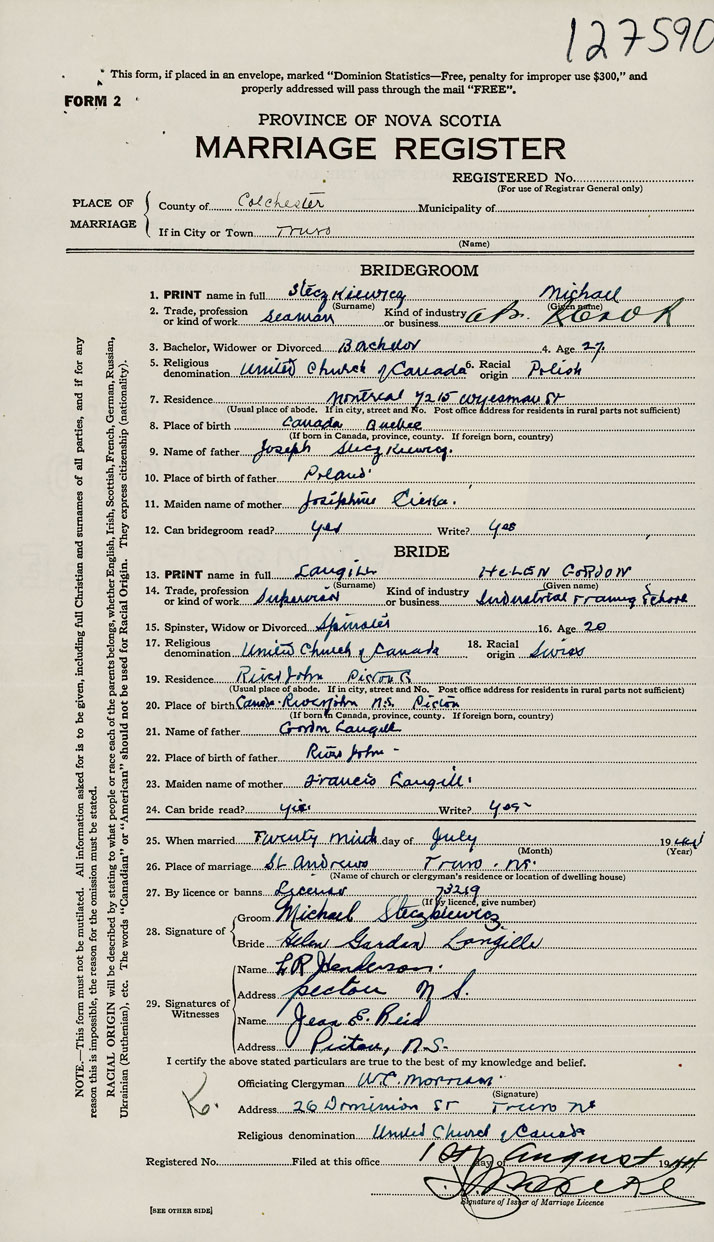 127590
* This form, if placed in an envelope, marked "Dominion Statistics—Free, penalty for improper use $300," and
properly addressed will pass through the mail "FREE".
FORM 2
PROVINCE OF NOVA SCOTIA
MARRIAGE REGISTER
REGISTERED No.
(For use of Registrar General only)
PLACE OF MARRIAGE
County of Colchester Municipality of
If in City or Town Truro
(Name)
BRIDEGROOM
1. PRINT name in full Steczkiewicz Michael
(Surname) (Given name)
2. Trade, profession or kind of work Seaman Kind of industry or business
3. Bachelor, Widower or Divorced Bachelor 4. Age 27
5. Religious denomination United Church of Canada 6. Racial origin Polish
7. Residence Montreal 7215 St
(Usual place of abode. If in city, street and No. Post office address for residents in rural parts not sufficient)
8. Place of birth Canada Quebec
(If born in Canada, province, county. If foreign born, country)
9. Name of father Joseph Steczkiewicz
10. Place of birth of father Poland
11. Maiden name of mother Josephine
12. Can bridegroom read? yes Write? yes
BRIDE
13. PRINT name in full Langill HELEN GORDON
(Surname) (Given name)
14. Trade, profession or kind of work Supervisor Kind of industry or business Industrial Traing School
15. Spinster, Widow or Divorced Spinster 16. Age 20
17. Religious denomination United Church of Canada 18. Racial origin Swiss
19. Residence River John Pictou
(Usual place of abode. If in city, street and No. Post office address for residents in rural parts not sufficient)
20. Place of birth Canada River John N.S. Pictou
(If born in Canada, province, county. If foreign born, country)
21. Name of father Gordon Langill
22. Place of birth of father River John -
23. Maiden name of mother Francis Langill.
24. Can bride read? yes Write? yes
25. When married Twenty day of July 1944
(Month) (Year)
26. Place of marriage St Andrews Truro . NS.
(Name of church or clergyman's residence or location of dwelling house)
27. By licence or banns License 73219
(If by licence, give number)
28. Signature of
Groom Michael Steczkiewicz
Bride Helen Gordon Langille
29. Signatures of Witnesses
Name L R Henderson.
Address pictou N S.
Name Jean E. Reid
Address Pictou, N.S.
I certify the above stated particulars are true to the best of my knowledge and belief.
Officiating Clergyman W.C. Morrison
(Signature)
Address 26 Dominion St Truro NS
Religious denomination United Church of Canada
Registered No. Filed at this office 1st day of August 1944
Signature of Issuer of Marriage Licence
[SEE OTHER SIDE]
NOTE.—This form must not be mutilated. All information asked for is to be given, including full Christian and surnames of all parties, and if for any
reason this is impossible, the reason for the omission must be stated.
RACIAL ORIGIN will be described by stating to what people or race each of the parents belongs, whether English, Irish, Scottish, French, German, Russian,
Ukrainian (Ruthenian), etc. The words "Canadian" or "American" should not be used for Racial Origin. They express citizenship (nationality).